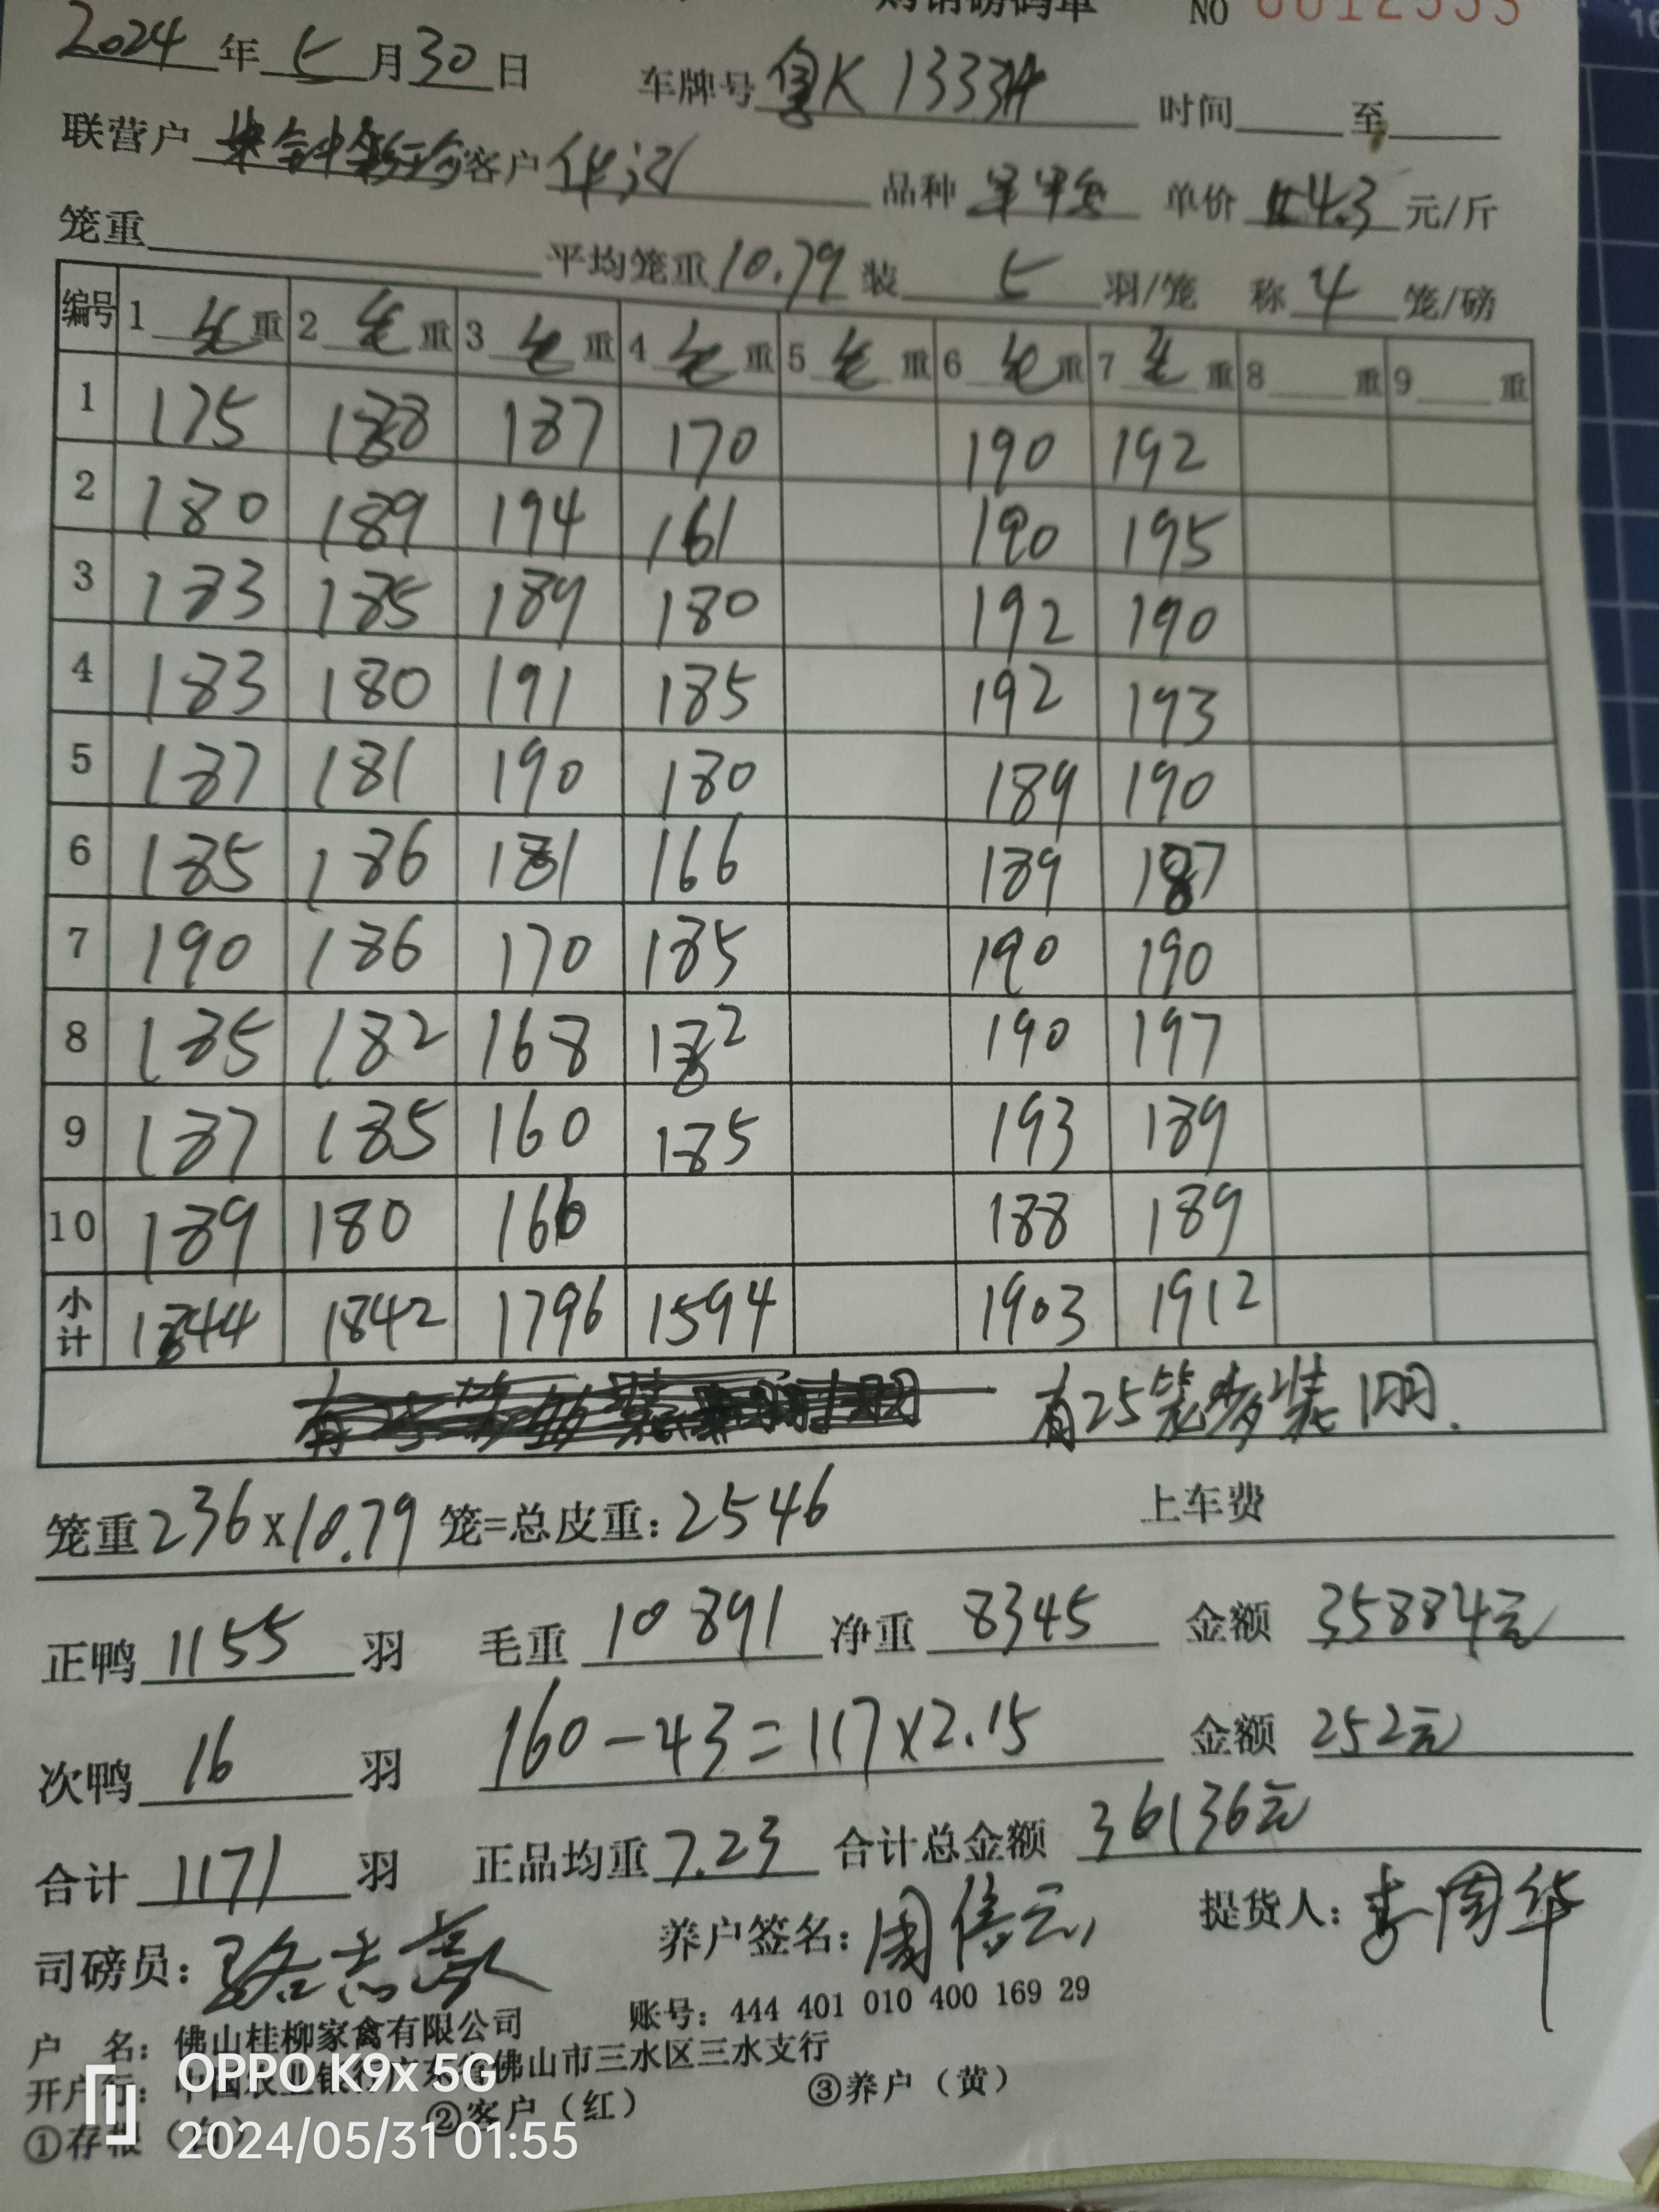 购销磅码单 NO
2024年5月30日 车牌号 粤K 1333 时间 至
联营户 客户 华记 品种 单价 4.3 元/斤
笼重 平均笼重 10.79 装 5 羽/笼 称 4 笼/磅
编号 1 毛重 2 毛重 3 毛重 4 毛重 5 毛重 6 毛重 7 毛重 8 重 9 重
1 175 188 187 170 190 192
2 180 189 194 161 190 195
3 183 185 189 180 192 190
4 183 180 191 185 192 193
5 187 181 190 180 189 190
6 185 186 181 166 189 187
7 190 186 170 185 190 190
8 185 182 168 182 190 197
9 187 185 160 185 193 189
10 189 180 166 188 189
小计 1844 1842 1796 1594 1903 1912
有25笼多装1羽.
笼重 236×10.79 笼=总皮重: 2546 上车费
正鸭 1155 羽 毛重 10891 净重 8345 金额 35884元
次鸭 16 羽 160-43=117×2.15 金额 252元
合计 1171 羽 正品均重 7.23 合计总金额 36136元
司磅员: 养户签名: 周 提货人: 李周华
户 名: 佛山桂柳家禽有限公司 账号: 444 401 010 400 169 29
开户行: 中国农业银行广东省佛山市三水区三水支行
①存根(白) ②客户(红) ③养户(黄)
OPPO K9x 5G
2024/05/31 01:55